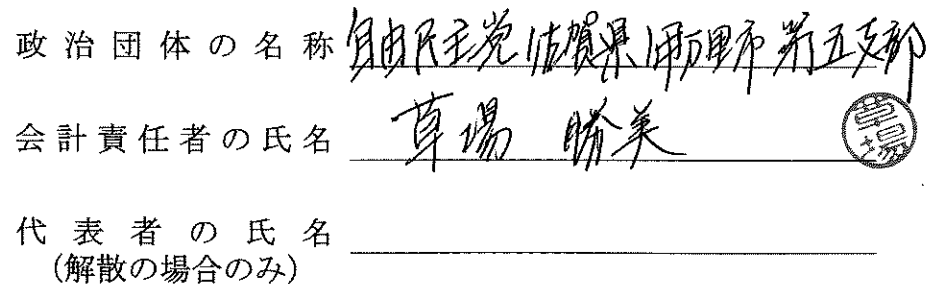 政治団体の名称 自由民主党佐賀県伊万里市第五支部
会計責任者の氏名 草場 勝美
草場
代表者の氏名
(解散の場合のみ)